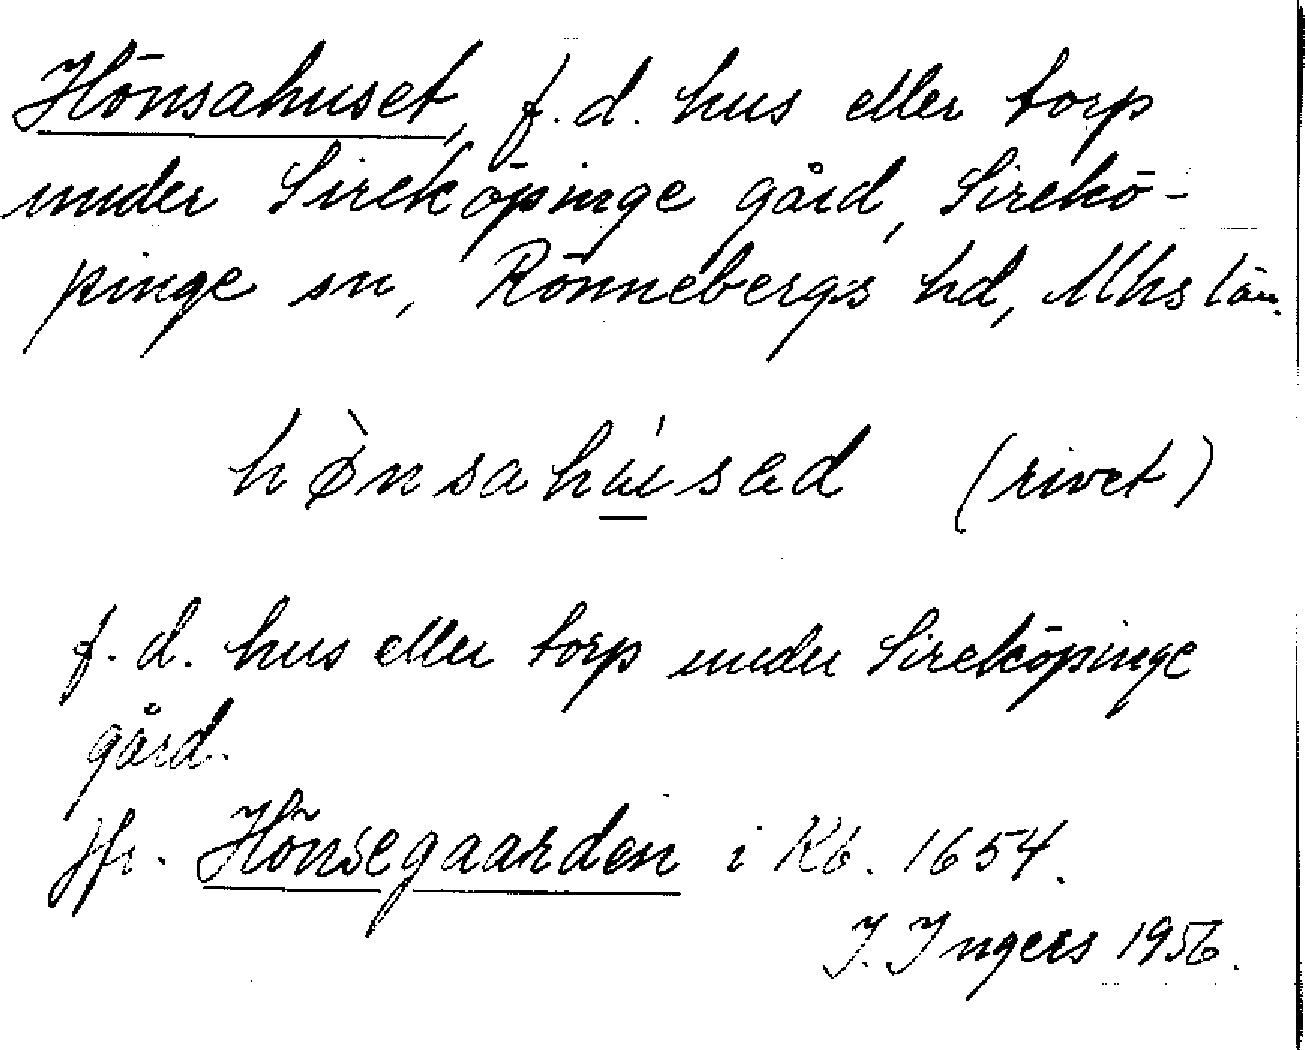 Hönsahuset, f.d. hus eller torp
under Sireköpinge gård, Sirekö-
pinge sn, Rönnebergs hd, Mhs län.
hø̀nsahú̲sad (rivet)
f.d. hus eller torp under Sireköpinge
gård.
jfr. Hönsegaarden i Kb. 1654.
I. Ingers 1956.